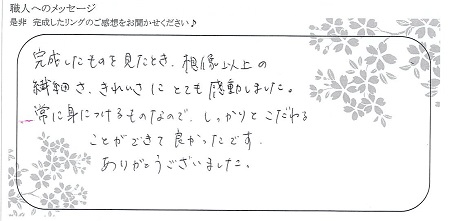 職人へのメッセージ
是非 完成したリングのご感想をお聞かせください♪
完成したものを見たとき、想像以上の
繊細さ、きれいさにとても感動しました。
常に身につけるものなので、しっかりとこだわる
ことができて良かったです。
ありがとうございました。